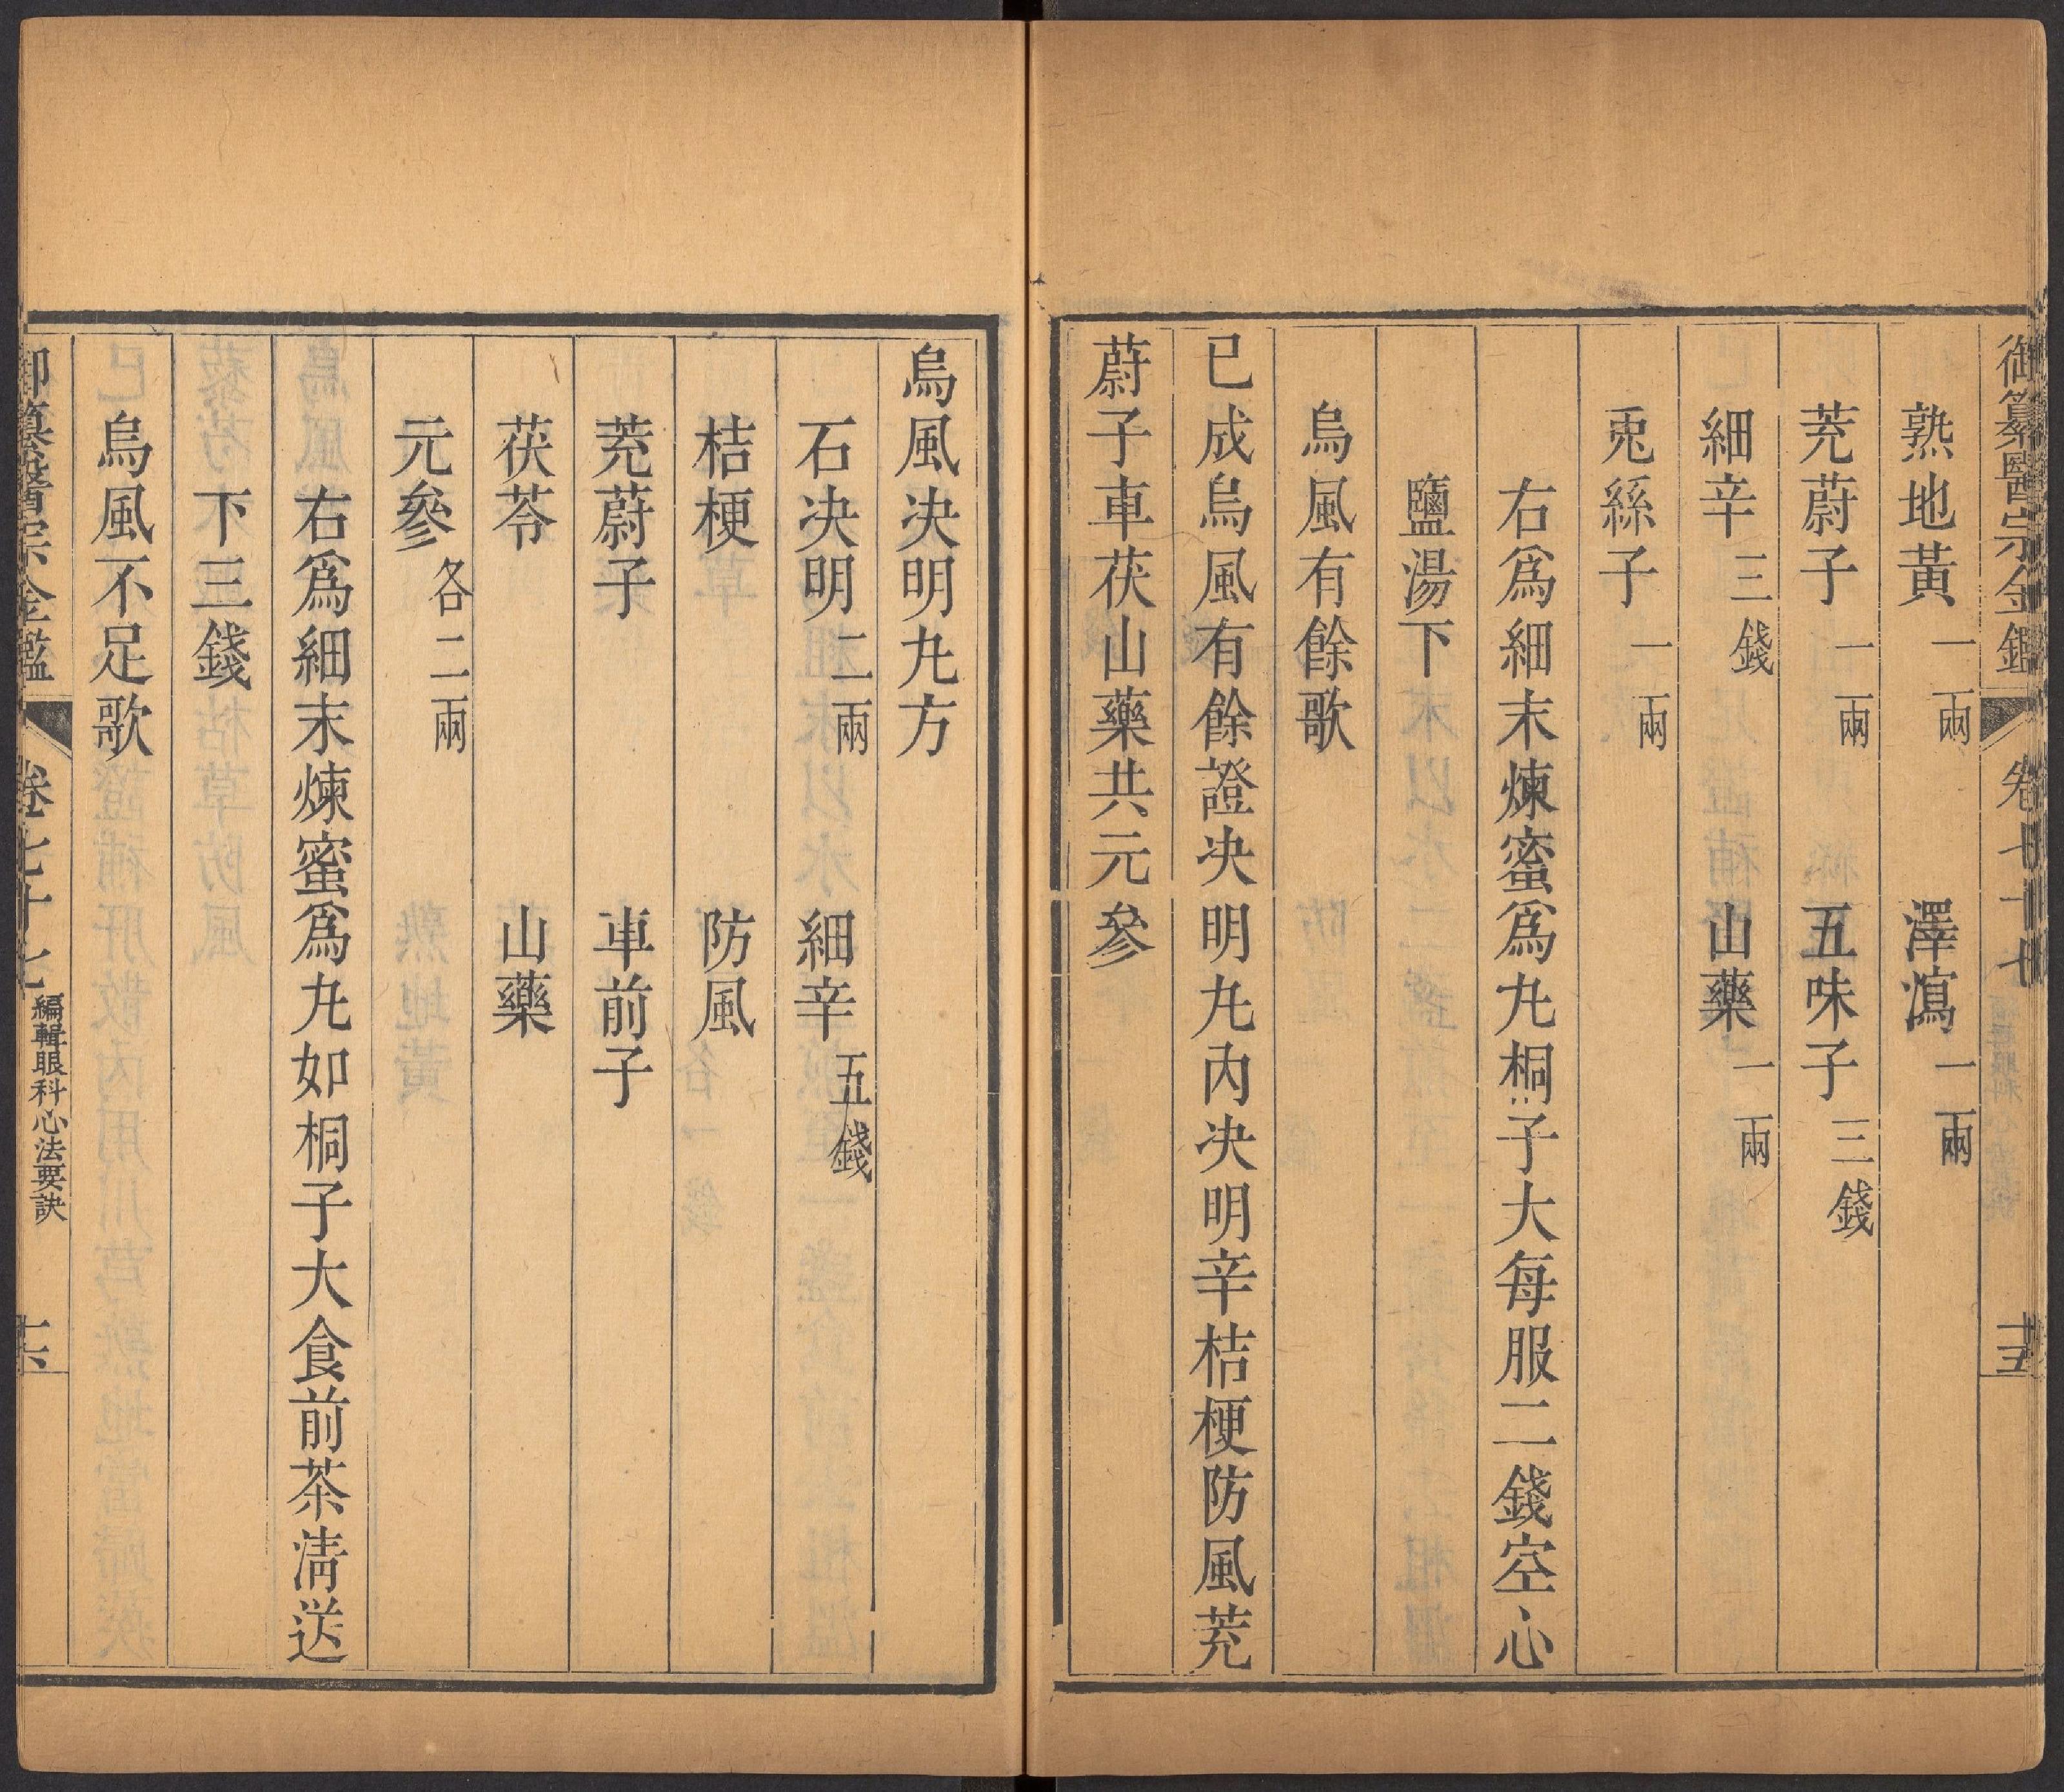 御纂醫宗金鑑 卷七十七 十五
熟地黃一兩 澤瀉一兩
茺蔚子一兩 五味子三錢
細辛三錢 山藥一兩
兎絲子一兩
右爲細末煉蜜爲丸桐子大每服二錢空心
鹽湯下
烏風有餘歌
已成烏風有餘證决明丸內决明辛桔梗防風茺
蔚子車茯山藥共元參
烏風决明丸方
石决明二兩 細辛五錢
桔梗 防風
茺蔚子 車前子
茯苓 山藥
元參各二兩
右爲細末煉蜜爲丸如桐子大食前茶淸送
下三錢
烏風不足歌
御纂醫宗金鑑 卷七十七 編輯眼科心法要訣 十六